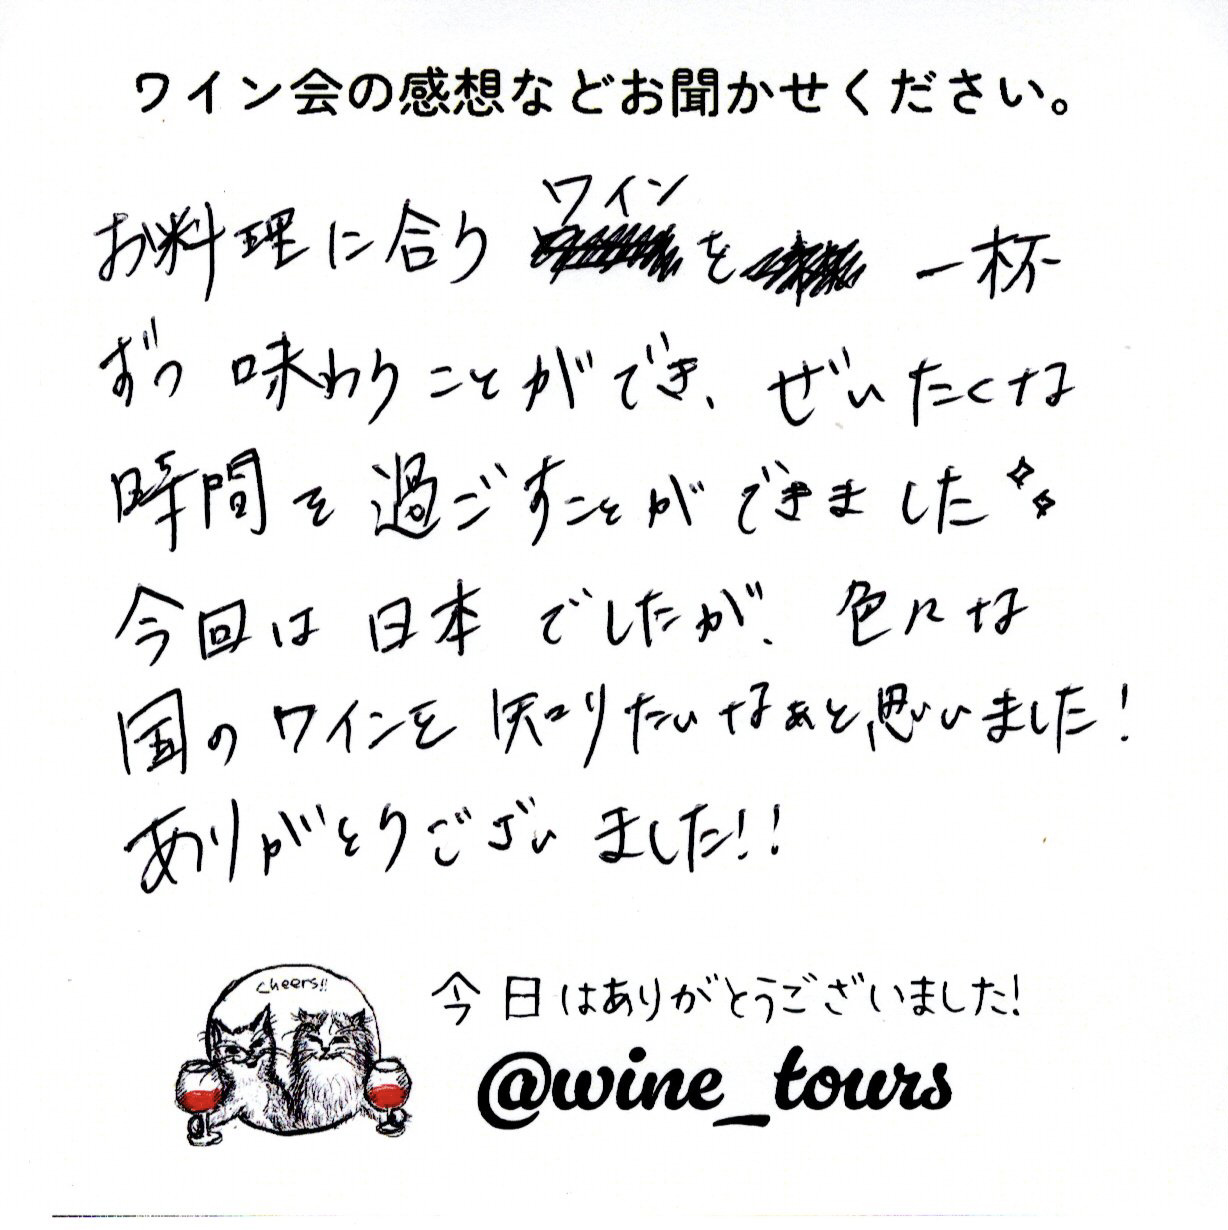 ワイン会の感想などお聞かせください。
お料理に合う ワイン を 一杯
ずつ 味わうことができ、ぜいたくな
時間を過ごすことができました
今回は日本でしたが、色々な
国のワインを知りたいなぁと思いました!
ありがとうございました!!
cheers!!
今日はありがとうございました!
@wine_tours